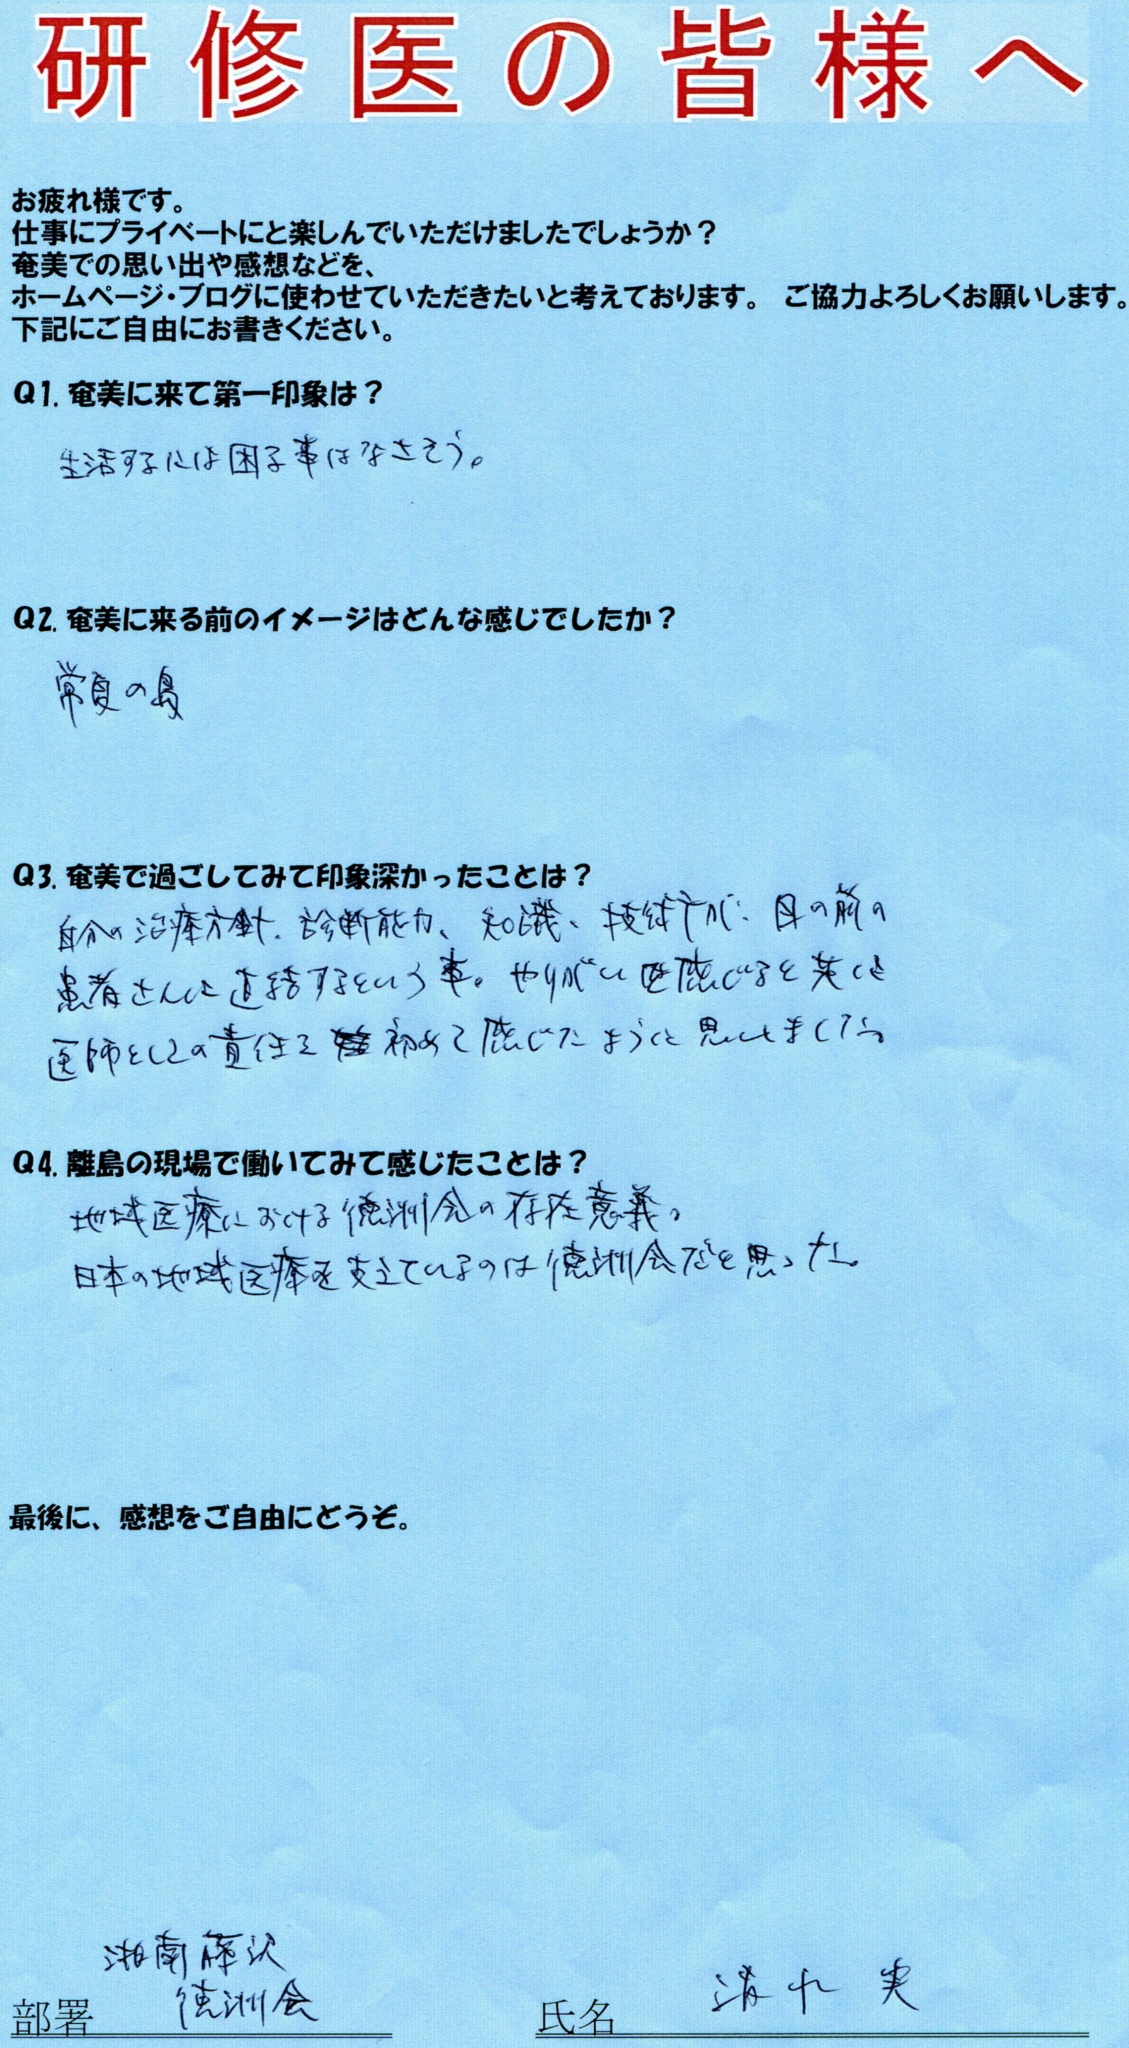 研修医の皆様へ
お疲れ様です。
仕事にプライベートにと楽しんでいただけましたでしょうか？
奄美での思い出や感想などを、
ホームページ・ブログに使わせていただきたいと考えております。 ご協力よろしくお願いします。
下記にご自由にお書きください。
Q1. 奄美に来て第一印象は？
生活するには困る事はなさそう。
Q2. 奄美に来る前のイメージはどんな感じでしたか？
常夏の島
Q3. 奄美で過ごしてみて印象深かったことは？
自分の治療方針、診断能力、知識、技術等が、目の前の
患者さんに直結するという事。やりがいを感じると共に
医師としての責任を初めて感じたように思いました。
Q4. 離島の現場で働いてみて感じたことは？
地域医療における徳洲会の存在意義。
日本の地域医療を支えているのは徳洲会だと思った。
最後に、感想をご自由にどうぞ。
湘南藤沢
部署 徳洲会
氏名 清水 実